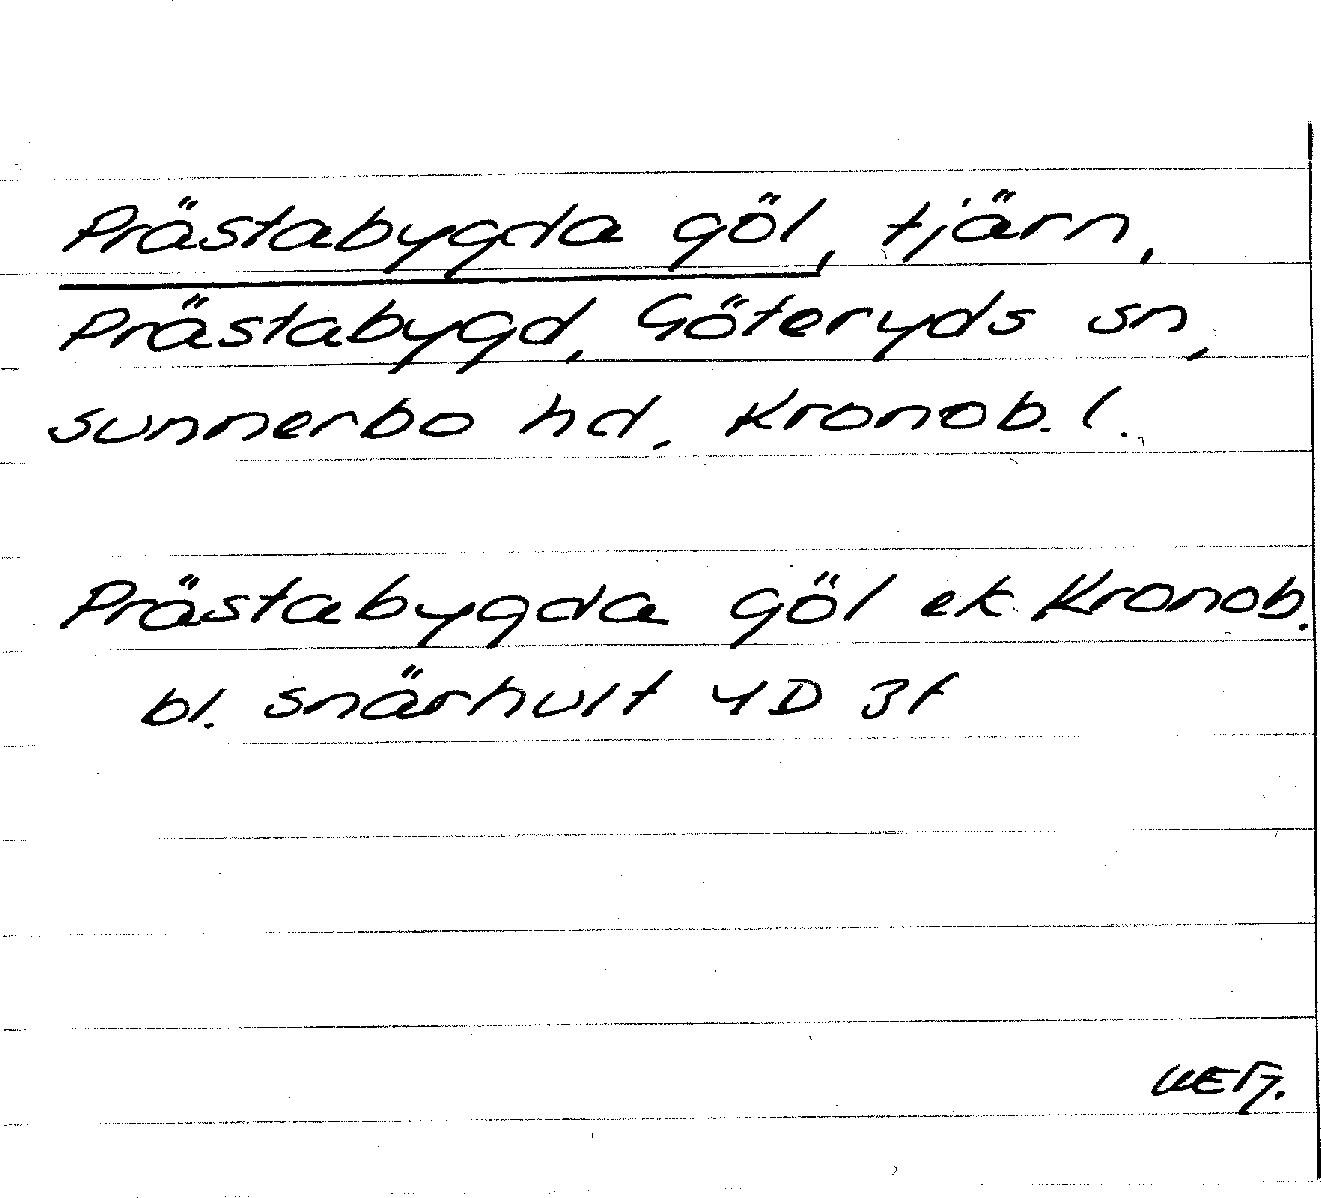 Prästabygda göl, tjärn,
Prästabygd, Göteryds sn,
sunnerbo hd, Kronob. l.
Prästabygda göl ek Kronob.
bl. snärhult 4D 3f